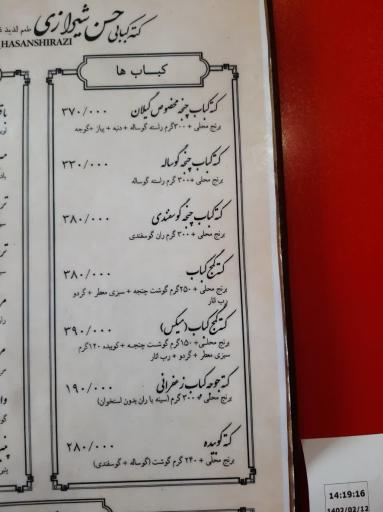 کته کبابی حسن شیرازی
HASANSHIRAZI
کبـــاب ها
کته کباب چنجه مخصوص گیلان ۳۷۰/۰۰۰
برنج محلی + ۳۰۰ گرم راسته گوساله + دنبه + پیاز + گوجه
کته کباب چنجه گوساله ۳۳۰/۰۰۰
برنج محلی + ۳۰۰ گرم راسته گوساله
کته کباب چنجه گوسفندی ۳۸۰/۰۰۰
برنج محلی + ۳۰۰ گرم ران گوسفندی
کته گمج کباب ۳۸۰/۰۰۰
برنج محلی + ۲۵۰ گرم گوشت چنجه + سبزی معطر + گردو
رب انار
کته گمج کباب (میکس) ۳۹۰/۰۰۰
برنج محلی + ۱۵۰ گرم گوشت چنجه + کوبیده ۱۲۰ گرم
سبزی معطر + گردو + رب انار
کته جوجه کباب زعفرانی ۱۹۰/۰۰۰
برنج محلی + ۳۰۰ گرم (سینه یا ران بدون استخوان)
کته کوبیده ۲۸۰/۰۰۰
برنج محلی + ۲۴۰ گرم گوشت (گوساله + گوسفندی)
14:19:16
1402/02/12